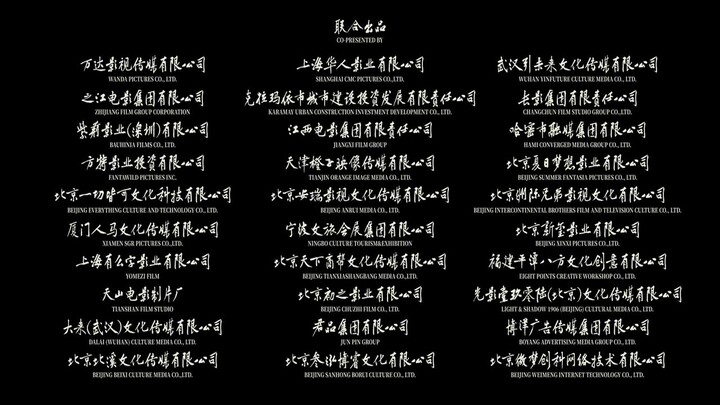 联合出品
CO-PRESENTED BY
万达影视传媒有限公司
WANDA PICTURES CO., LTD.
之江电影集团有限公司
ZHEJIANG FILM GROUP CORPORATION
紫荆影业(深圳)有限公司
BAUHINIA FILMS CO., LTD.
方特影业投资有限公司
FANTAWILD PICTURES INC.
北京一切皆可文化科技有限公司
BEIJING EVERYTHING CULTURE AND TECHNOLOGY CO., LTD.
厦门人马文化传媒有限公司
XIAMEN SGR PICTURES CO.,LTD.
上海有么字影业有限公司
YOMEZI FILM
天山电影制片厂
TIANSHAN FILM STUDIO
大来(武汉)文化传媒有限公司
DALAI (WUHAN) CULTURE MEDIA CO., LTD.
北京北溪文化传媒有限公司
BEIJING BEIXI CULTURE MEDIA CO., LTD.
上海华人影业有限公司
SHANGHAI CMC PICTURES CO., LTD.
克拉玛依市城市建设投资发展有限责任公司
KARAMAY URBAN CONSTRUCTION INVESTMENT DEVELOPMENT CO., LTD.
江西电影集团有限责任公司
JIANGXI FILM GROUP
天津橙子映像传媒有限公司
TIANJIN ORANGE IMAGE MEDIA CO., LTD.
北京安瑞影视文化传媒有限公司
BEIJING ANRUI MEDIA CO., LTD.
宁波文旅会展集团有限公司
NINGBO CULTURE TOURISM&EXHIBITION
北京天下商帮文化传媒有限公司
BEIJING TIANXIASHANGBANG MEDIA CO., LTD.
北京初之影业有限公司
BEIJING CHUZHI FILM CO., LTD.
君品集团有限公司
JUN PIN GROUP
北京叁泓博睿文化有限公司
BEIJING SANHONG BORUI CULTURE CO., LTD.
武汉引未来文化传媒有限公司
WUHAN YINFUTURE CULTURE MEDIA CO., LTD.
长影集团有限责任公司
CHANGCHUN FILM STUDIO GROUP CO., LTD.
哈密市融媒集团有限公司
HAMI CONVERGED MEDIA GROUP CO., LTD.
北京夏日梦想影业有限公司
BEIJING SUMMER FANTASIA PICTURES CO., LTD.
北京洲际兄弟影视文化有限公司
BEIJING INTERCONTINENTAL BROTHERS FILM AND TELEVISION CULTURE CO., LTD.
北京新玺影业有限公司
BEIJING XINXI PICTURES CO., LTD.
福建平潭八方文化创意有限公司
EIGHT POINTS CREATIVE WORKSHOP CO., LTD.
光影壹玖零陆(北京)文化传媒有限公司
LIGHT & SHADOW 1906 (BEIJING) CULTURAL MEDIA CO., LTD.
博洋广告传媒集团有限公司
BOYANG ADVERTISING MEDIA GROUP CO., LTD.
北京微梦创科网络技术有限公司
BEIJING WEIMENG INTERNET TECHNOLOGY CO., LTD.